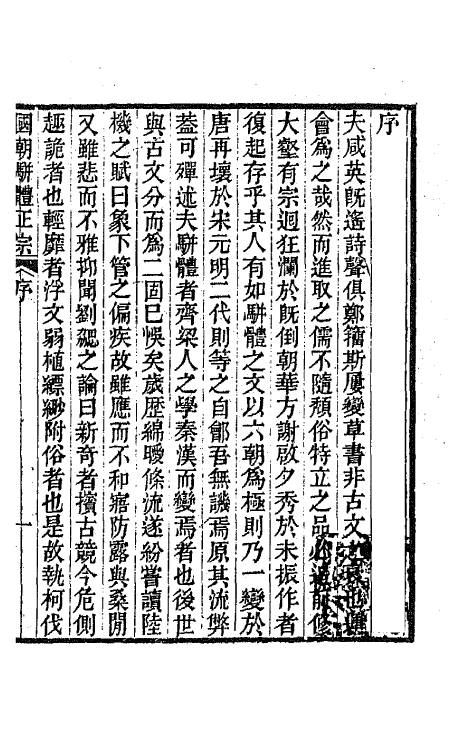 序
夫咸英旣遙詩聲俱鄭籀斯屢變草書非古文
會爲之哉然而進取之儒不隨頹俗特立之品
大壑有宗迴狂瀾於旣倒朝華方謝啟夕秀於未振作者
復起存乎其人有如駢體之文以六朝爲極則乃一變於
唐再壞於宋元明二代則等之自鄶吾無譏焉原其流弊
葢可殫述夫駢體者齊梁人之學秦漢而變焉者也後世
與古文分而爲二固已悞矣歲歴綿曖條流遂紛嘗讀陸
機之賦曰象下管之偏疾故雖應而不和寤防露與桑閒
又雖悲而不雅抑聞劉勰之論曰新奇者擯古競今危側
趣詭者也輕靡者浮文弱植縹緲附俗者也是故執柯伐
國朝駢體正宗 序 一